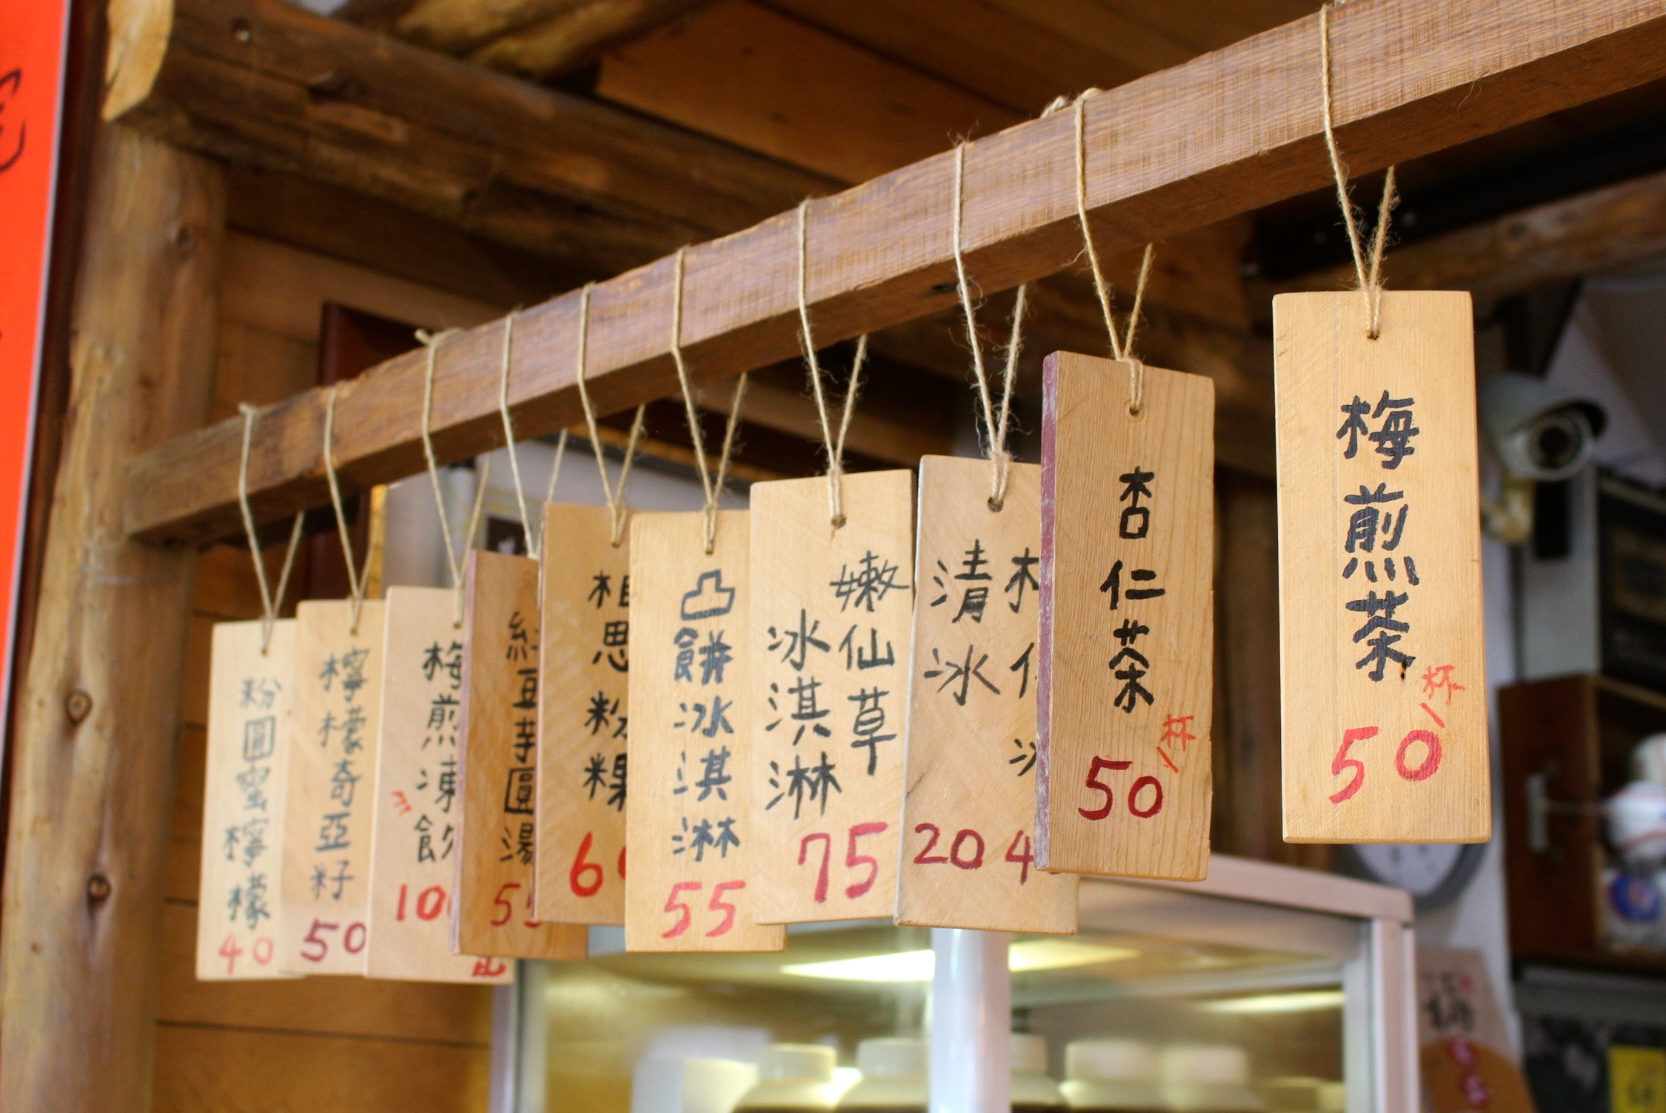 粉圓蜜檸檬
40
檸檬奇亞籽
50
梅煎凍飲
10
紅豆芋圓湯
55
相思粉粿
6
凸餅冰淇淋
55
嫩仙草
冰淇淋
75
清冰
20
4
杏仁茶
50/杯
梅煎茶
50/杯